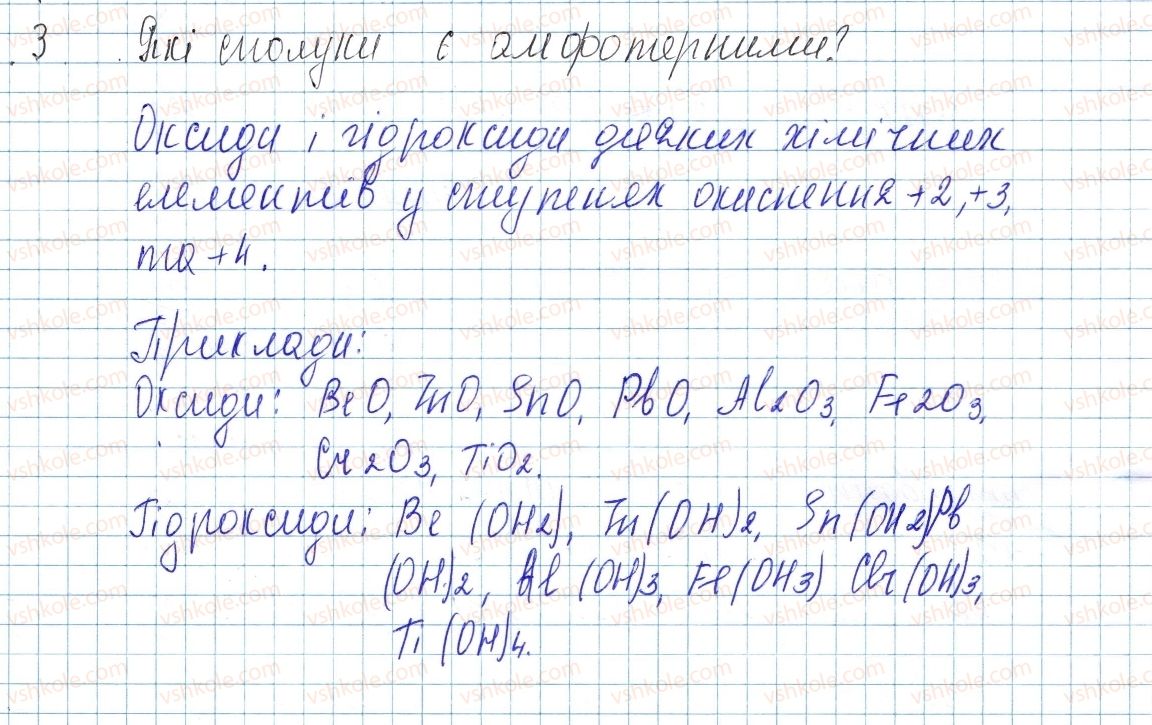 3 Які сполуки є амфотерними?
Оксиди і гідроксиди деяких хімічних
елементів у ступенях окиснення +2, +3,
та +4.
Приклади:
Оксиди: BeO, ZnO, SnO, PbO, Al2O3, Fe2O3,
Cr2O3, TiO2.
Гідроксиди: Be (OH2), Zn(OH)2, Sn(OH2)Pb
(OH)2, Al (OH)3, Fe(OH3) Cr(OH)3,
Ti (OH)4.